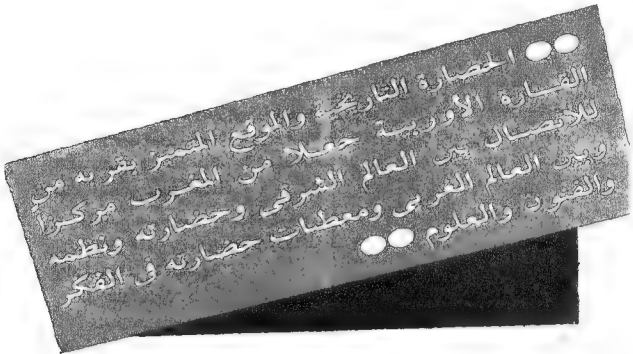 الحضارة التاريخية والموقع المتميز بقربه من
القارة الأوربية جعلا من المغرب مركزاً
للاتصال بين العالم الشرقى وحضارته ونظمه
وبين العالم الغربى ومعطيات حضارته فى الفكر
والفنون والعلوم